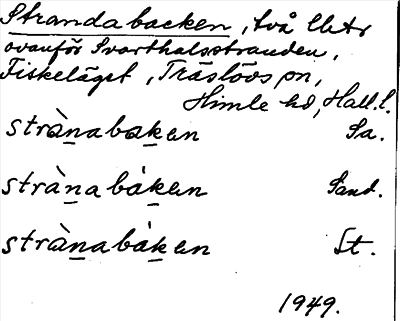 Strandabacken, två
ovanför Svarthalsstranden,
Fiskeläget, Träslövs sn,
Himle hd, Hall. l.
stràn̲abak̲en Sa.
stràn̲abák̲en Sand.
stràn̲abák̲en St.
1949.